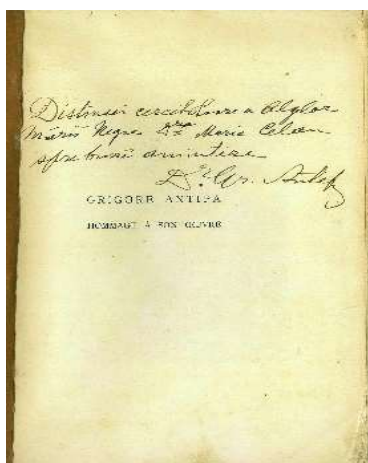 Distinsei cercetătoare a Algelor
Mării Negre D-rei Maria Celan
spre bună amintire
Dr Gr. Antipa
GRIGORE ANTIPA
HOMMAGE À SON ŒUVRE